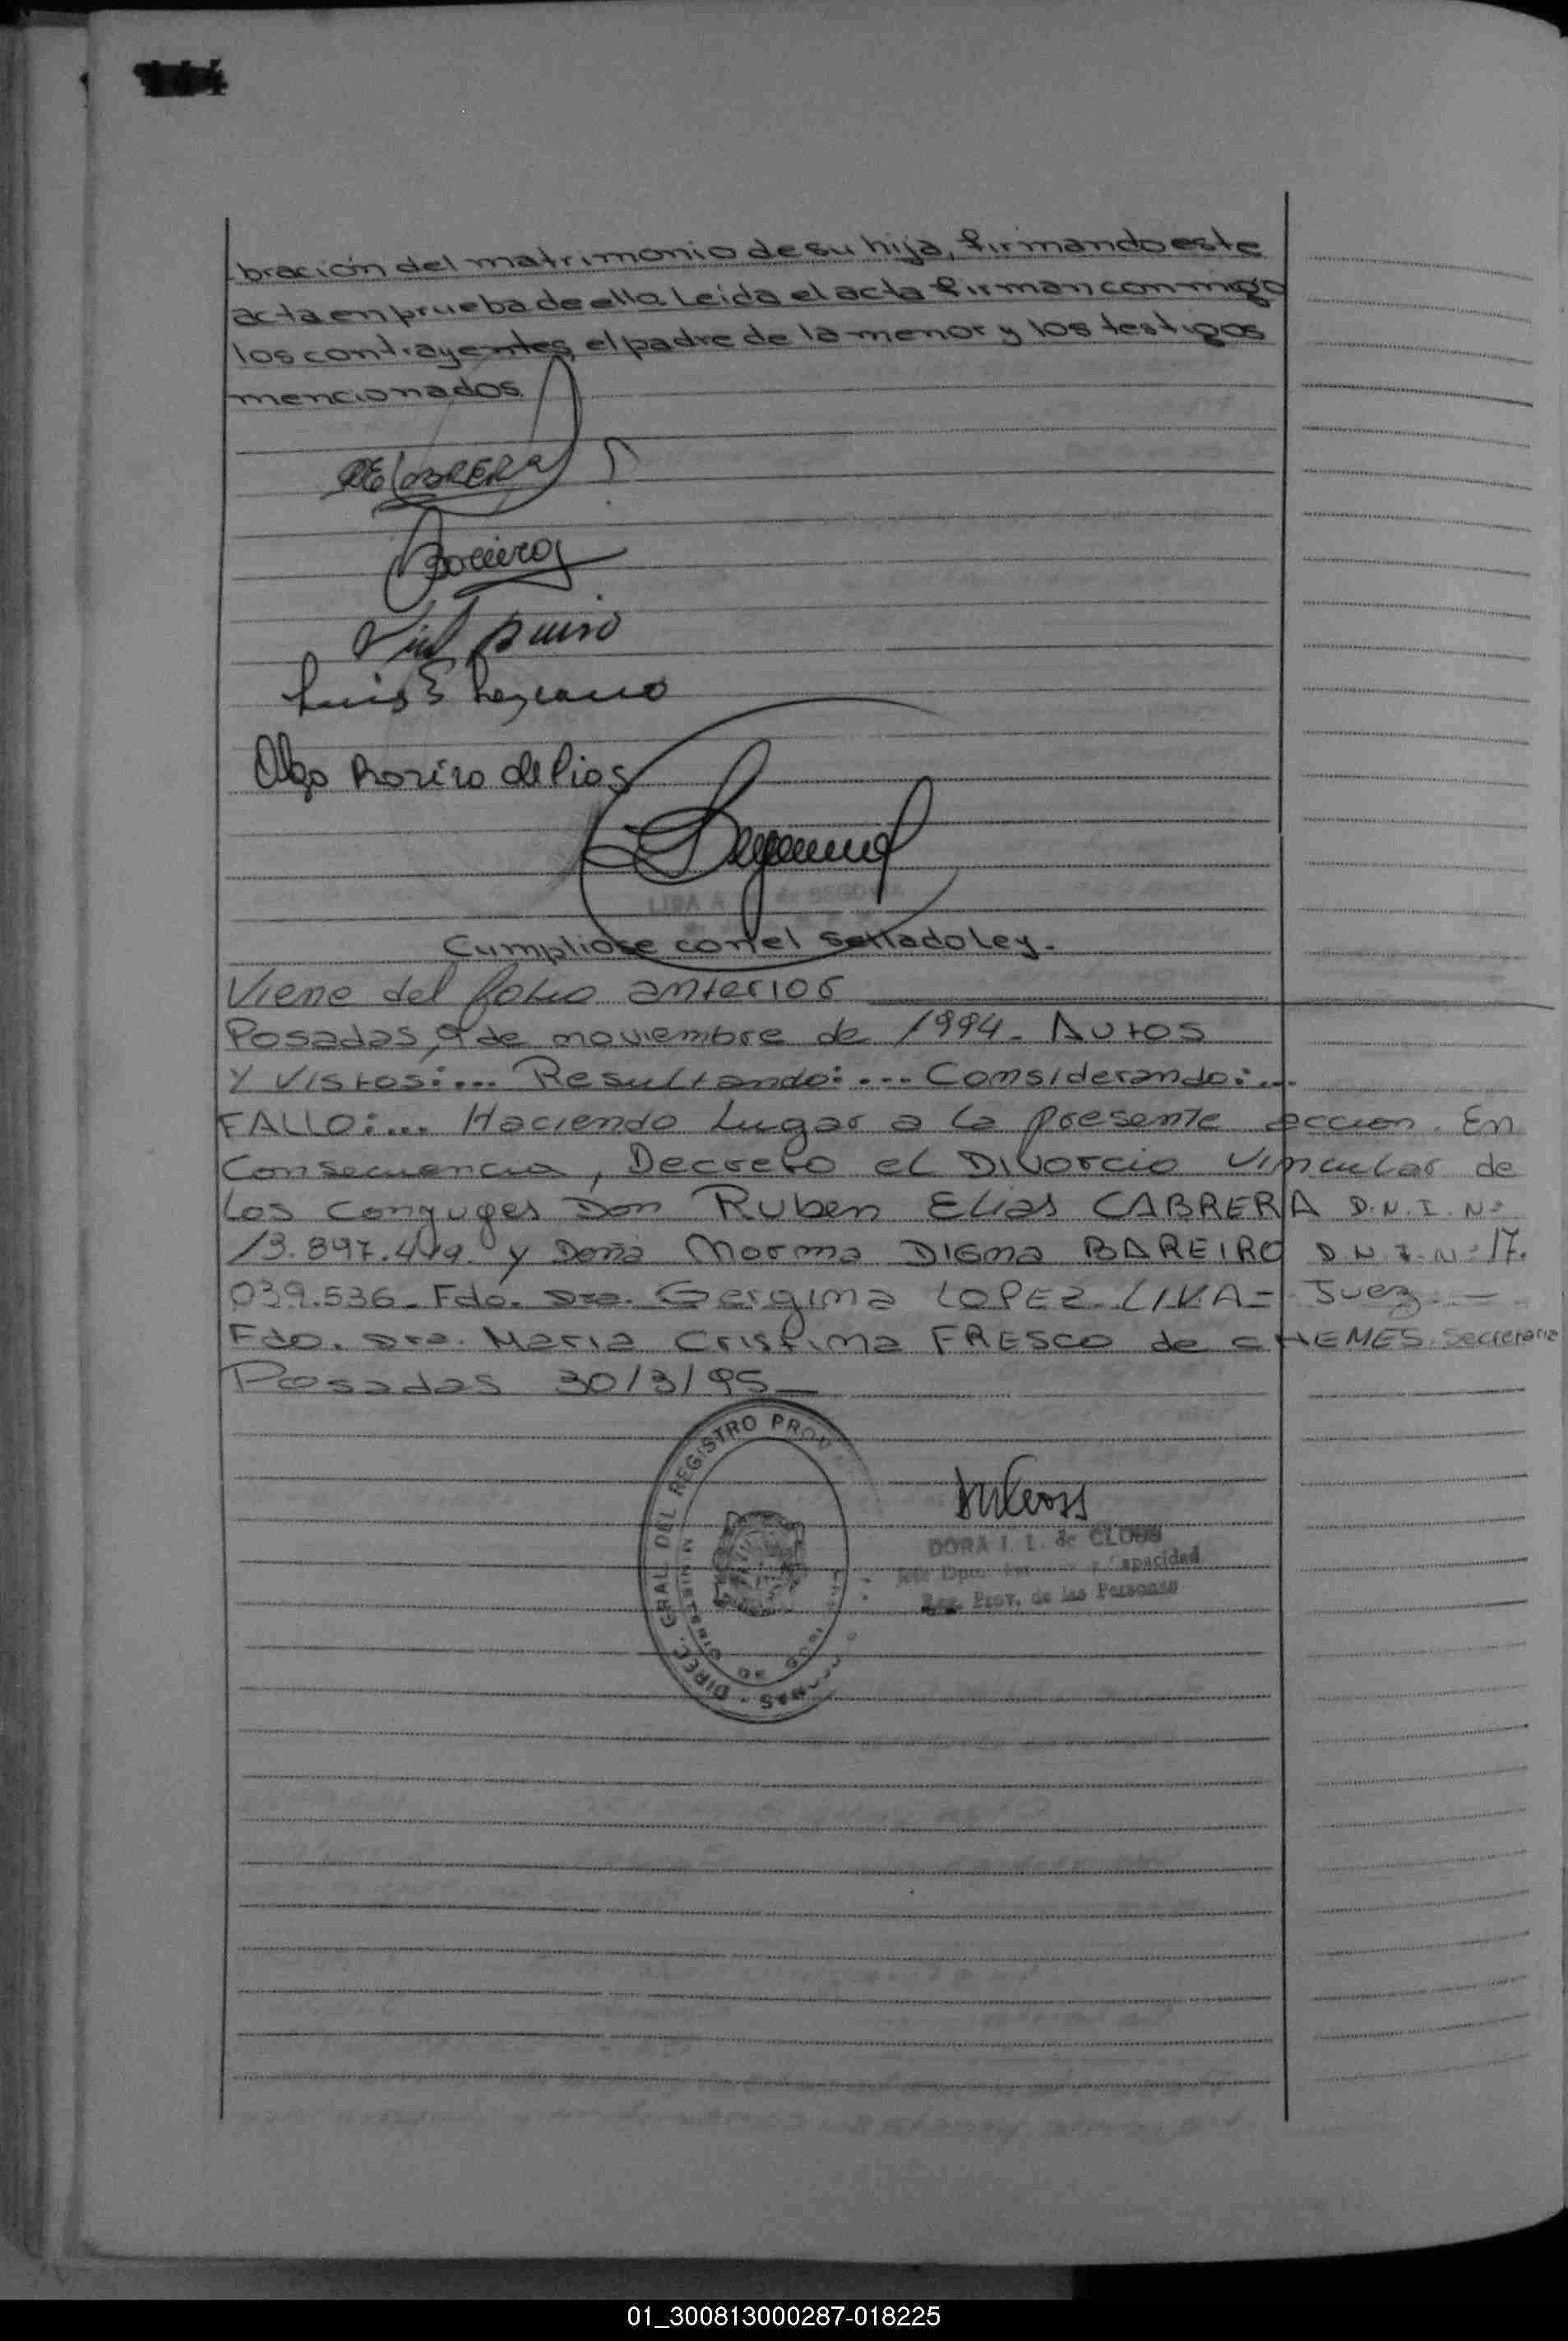 144
bración del matrimonio de su hija, firmando este
acta en prueba de ello. Leida el acta firman conmigo
los contrayentes, el padre de la menor y los testigos
mencionados.
RE CABRERA
Bareiro
Luis E Lezcano
Olga de Rios
LIDA A de SEGOVIA
Cumpliose con el sellado Ley.
Viene del folio anterior
Posadas, 9 de noviembre de 1994. Autos
Y Vistos:... Resultando:... Considerando:...
FALLO:... Haciendo Lugar a la presente accion. En
Consecuencia, Decreto el Divorcio Vincular de
Los Conyuges Don Ruben Elias CABRERA D.N.I. Nº
13.897.419. y Doña Norma Digna BAREIRO D.N.I. Nº 17.
039.536. Fdo. Dra. Gergina LOPEZ LIVA= Juez.—
Fdo. Dra. Maria Cristina FRESCO de CHEMES Secretaria
Posadas 30/3/95—
DIREC. GRAL. DEL REGISTRO PROV
MINISTERIO DE
DORA I. L. de CLOSS
Jefe Dpto. y Capacidad
Reg. Prov. de las Personas
01_300813000287-018225